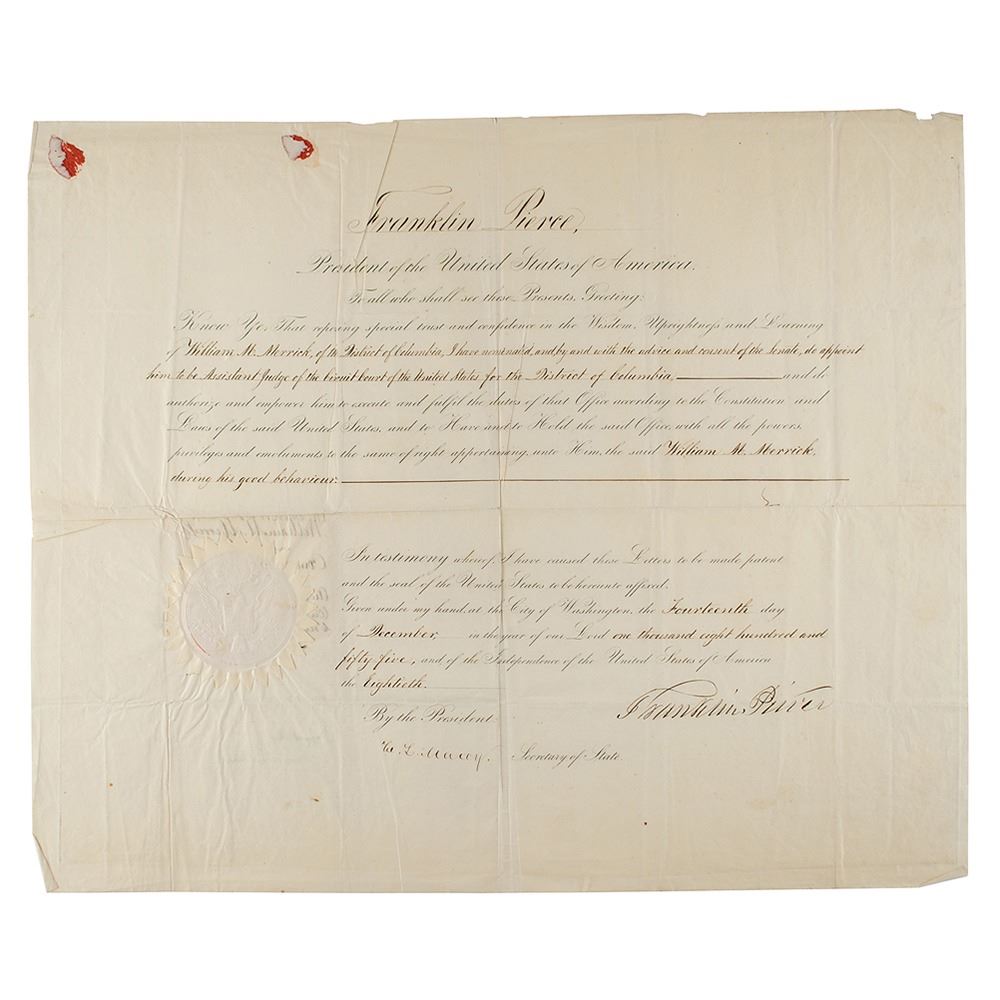 Franklin Pierce,
President of the United States of America.
To all who shall see these Presents, Greeting:
Know Ye, That reposing special trust and confidence in the Wisdom, Uprightness and Learning
of William M. Merrick, of the District of Columbia, I have nominated, and by and with the advice and consent of the Senate, do appoint
him to be Assistant Judge of the Circuit Court of the United States for the District of Columbia, and do
authorize and empower him to execute and fulfil the duties of that Office according to the Constitution and
Laws of the said United States, and to Have and to Hold the said Office, with all the powers,
privileges and emoluments to the same of right appertaining, unto Him, the said William M. Merrick,
during his good behaviour.
In testimony whereof, I have caused these Letters to be made patent
and the seal of the United States to be hereunto affixed.
Given under my hand, at the City of Washington, the Fourteenth day
of December, in the year of our Lord one thousand eight hundred and
fifty five, and of the Independence of the United States of America
the Eightieth.
Franklin Pierce
By the President
W. L. Marcy, Secretary of State.